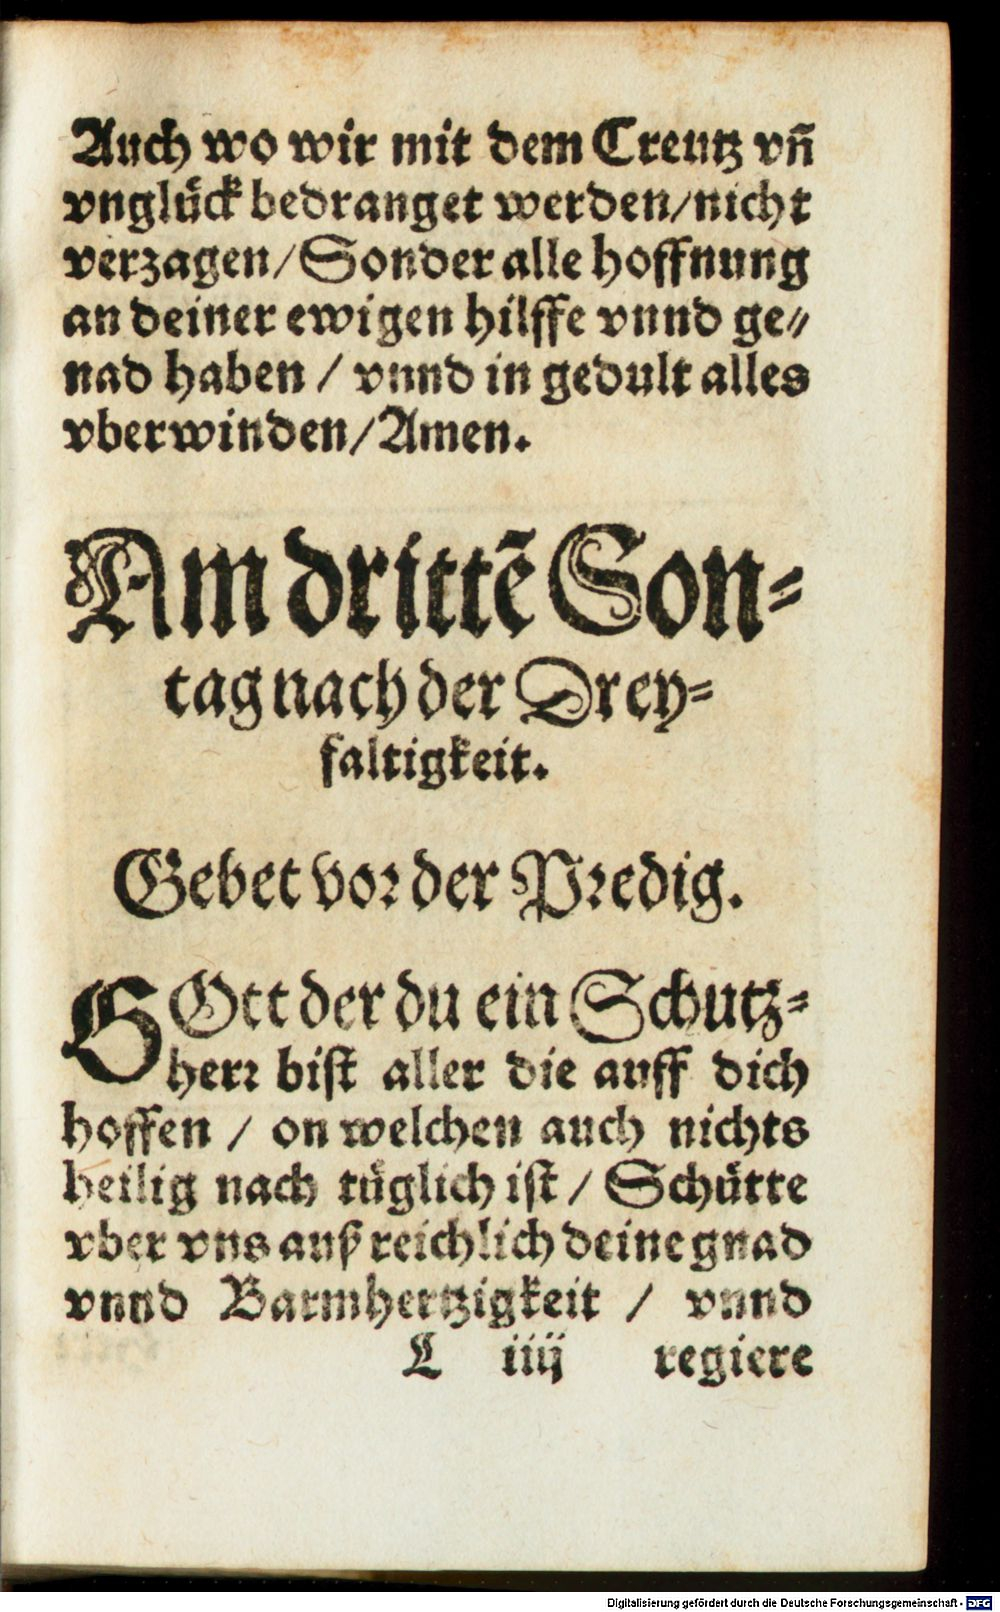 Auch wo wir mit dem Creutz vñ
vnglück bedranget werden/nicht
verzagen/Sonder alle hoffnung
an deiner ewigen hilffe vnnd ge⸗
nad haben / vnnd in gedult alles
vberwinden/Amen.
Am drittẽ Son⸗
tag nach der Drey⸗
faltigkeit.
Gebet vor der Predig.
GOtt der du ein Schutz⸗
herr bist aller die auff dich
hoffen / on welchen auch nichts
heilig nach tüglich ist / Schütte
vber vns auß reichlich deine gnad
vnnd Barmhertzigkeit / vnnd
L iiij regiere
Digitalisierung gefördert durch die Deutsche Forschungsgemeinschaft - DFG